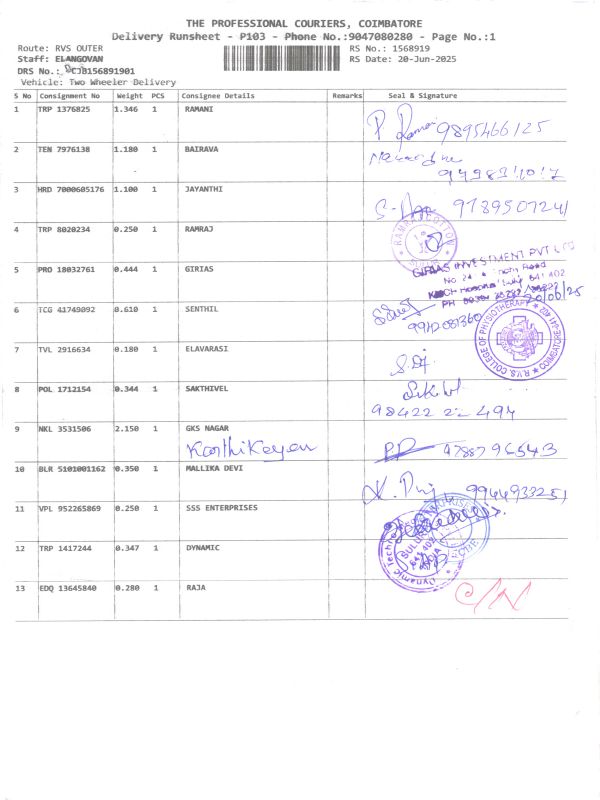 THE PROFESSIONAL COURIERS, COIMBATORE
Delivery Runsheet - P103 - Phone No.:9047080280 - Page No.:1
Route: RVS OUTER RS No.: 1568919
Staff: ELANGOVAN RS Date: 20-Jun-2025
DRS No.: DCJB156891901
Vehicle: Two Wheeler Delivery
S No Consignment No Weight PCS Consignee Details Remarks Seal & Signature
1 TRP 1376825 1.346 1 RAMANI
9895466125
2 TEN 7976138 1.180 1 BAIRAVA
3 HRD 7000605176 1.100 1 JAYANTHI
9789507241
4 TRP 8020234 0.250 1 RAMRAJ
RAMRAJ COTTON
5 PRO 18032761 0.444 1 GIRIAS
GIRIAS INVESTMENT PVT LTD
20/06/25
6 TCG 41749092 0.610 1 SENTHIL
R.V.S. COLLEGE OF PHYSIOTHERAPY COIMBATORE
7 TVL 2916634 0.180 1 ELAVARASI
8 POL 1712154 0.344 1 SAKTHIVEL
98422 22 494
9 NKL 3531506 2.150 1 GKS NAGAR
Karthikeyan 9788796543
10 BLR 5101001162 0.350 1 MALLIKA DEVI
9944933251
11 VPL 952265869 0.250 1 SSS ENTERPRISES
12 TRP 1417244 0.347 1 DYNAMIC
13 EDQ 13645840 0.280 1 RAJA
C/N